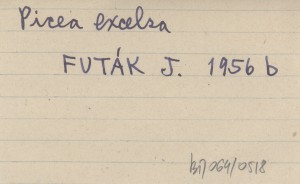 Picea excelsa
FUTÁK J. 1956 b
b7/064/0518